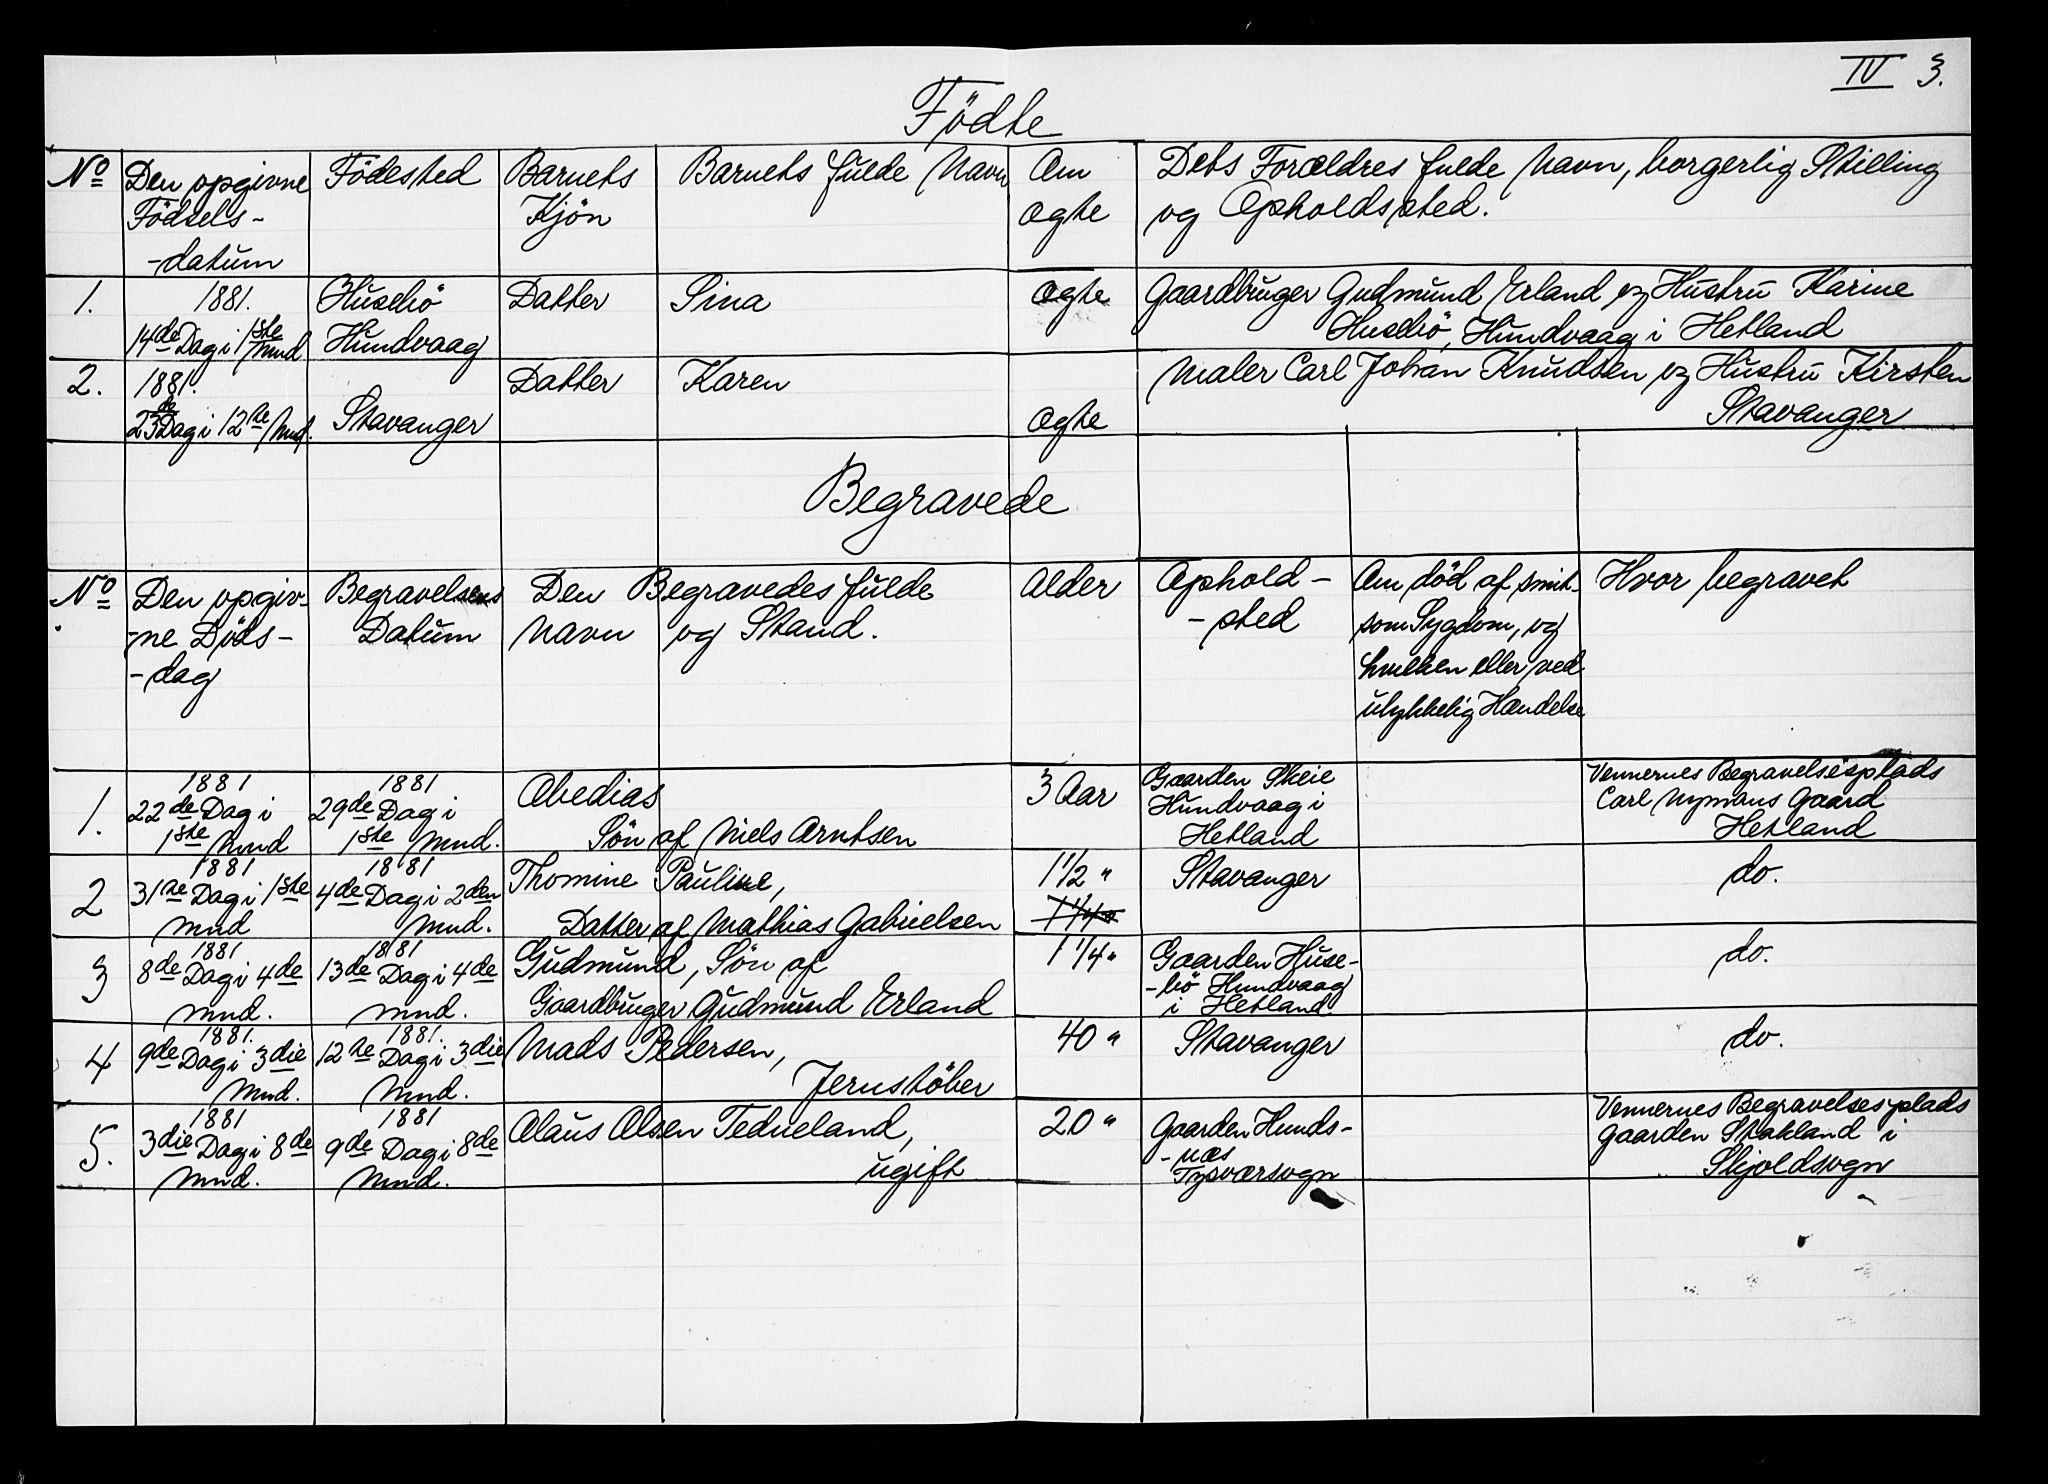 IV 3.
Födte
No Den opgivne Födsels- -datum Födested Barnets Kjön Barnets fulde Navn Om ægte Dets Forældres fulde Navn, borgerlig Stilling og Opholdssted.
1. 1881. 14de Dag i 1ste Mnd Husebö Hundvaag Datter Sina ægte Gaardbruger Gudmund Erland og Hustru Karine Husebö, Hundvaag i Hetland
2. 1881. 23de Dag i 12te Mnd. Stavanger Datter Karen ægte Maler Carl Johan Knudsen og Hustru Kirsten Stavanger
Begravede
No Den opgiv- -ne Döds- -dag Begravelsens Datum Den Begravedes fulde Navn og Stand. Alder Ophold- -sted Om död af smit- som Sygdom, og hvilken eller ved ulykkelig Hændelse Hvor begravet
1. 1881 22de Dag i 1ste Mnd 1881 29de Dag i 1ste Mnd. Obedias Sön af Niels Arntsen 3 Aar Gaarden Skeie Hundvaag i Hetland Vennernes Begravelsesplads Carl Nymans Gaard Hetland
2 1881 31te Dag i 1ste Mnd 1881 4de Dag i 2den Mnd. Thomine Pauline, Datter af Mathias Gabrielsen 1 1/2 " 1 1/4 " Stavanger do.
3 1881 8de Dag i 4de Mnd. 1881 13de Dag i 4de Mnd. Gudmund, Sön af Gaardbruger Gudmund Erland 1 1/4 " Gaarden Huse- -bö Hundvaag i Hetland do.
4 1881. 9de Dag i 3die Mnd. 1881. 12te Dag i 3die Mnd. Mads Pedersen, Jernstöber 40 " Stavanger do.
5. 1881 3die Dag i 8de Mnd. 1881 9de Dag i 8de Mnd. Olaus Olsen Tedneland, ugift 20 " Gaarden Hunds- -næs Tysværsogn Vennernes Begravelsesplads Gaarden Stakland i Skjoldsogn